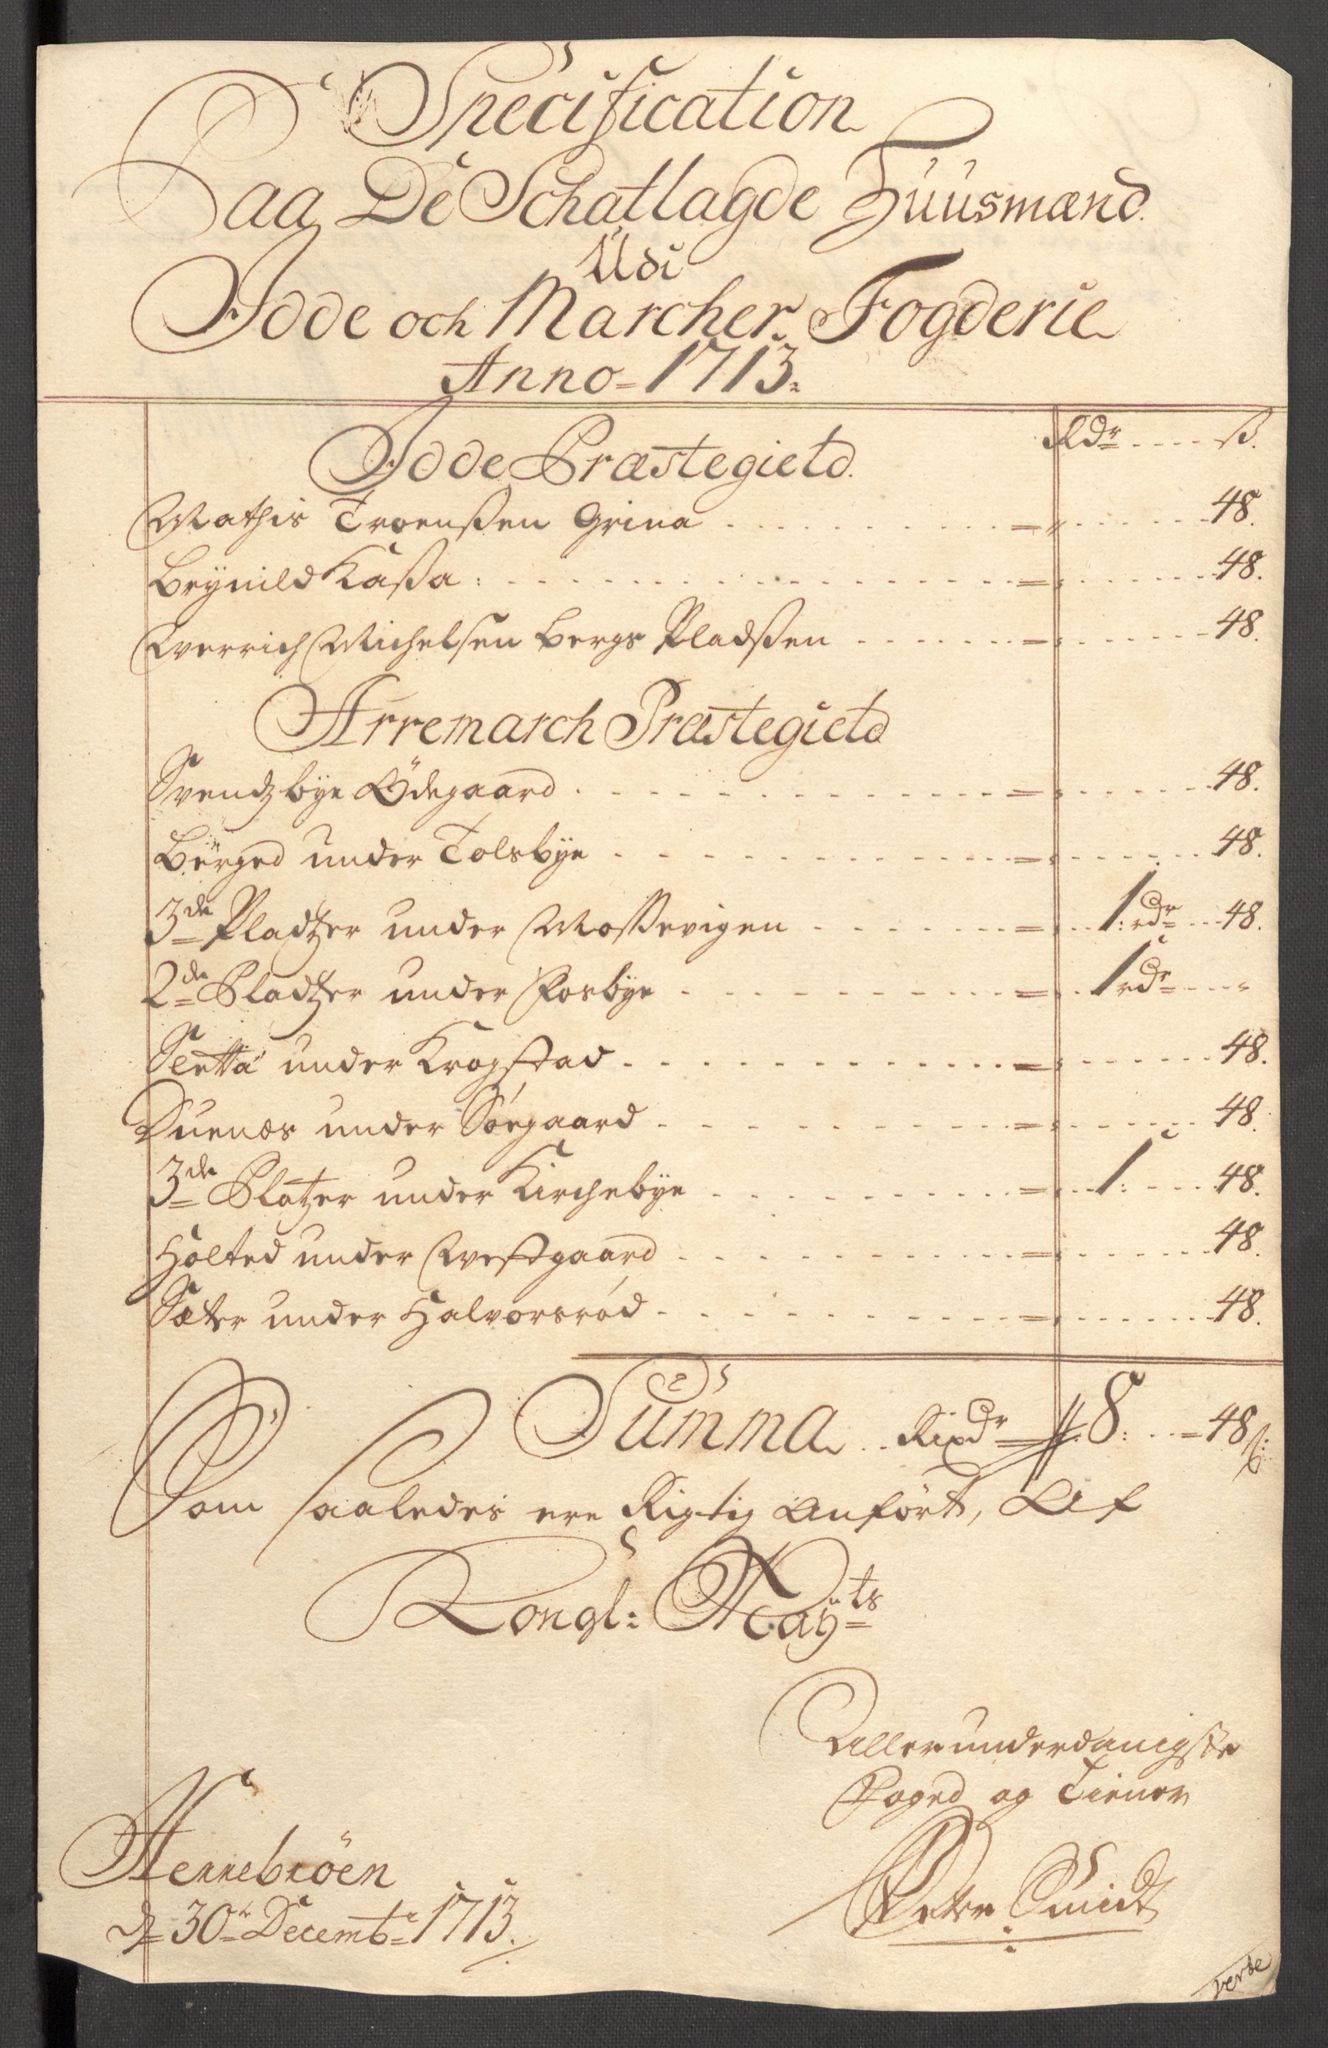 Specification
Paa De Schatlagde Huusmænd
Udi
Idde och Marcher Fogderie
Anno 1713.
Rdr ß.
Idde Præstegield
Mathis Troenßen Grina 48.
Brynild Kaßa 48.
Werrich Michelsen Bergs Pladßen 48.
Arremarch Præstegield
Svendzbye Ødegaard 48.
Börged under Tolsbye 48.
3de Pladtzer under Mossevigen 1 rdr 48.
2de Pladtzer under Fosbye 1 rdr
Sletta under Krogstad 48.
Duenæs under Söegaard 48.
3de Platzer under Kirchebye 1 48.
Holted under Westgaard 48.
Sæter under Halvorsrød 48.
Summa Rixdr 8 48 ß
Som saaledes ere Rigtig Anført, Af
Kongl: Mayts
Allerunderdanigste
Foged og Tiener
Peter Smidt
Hennebröen
d 30te Decembr 1713.
verte